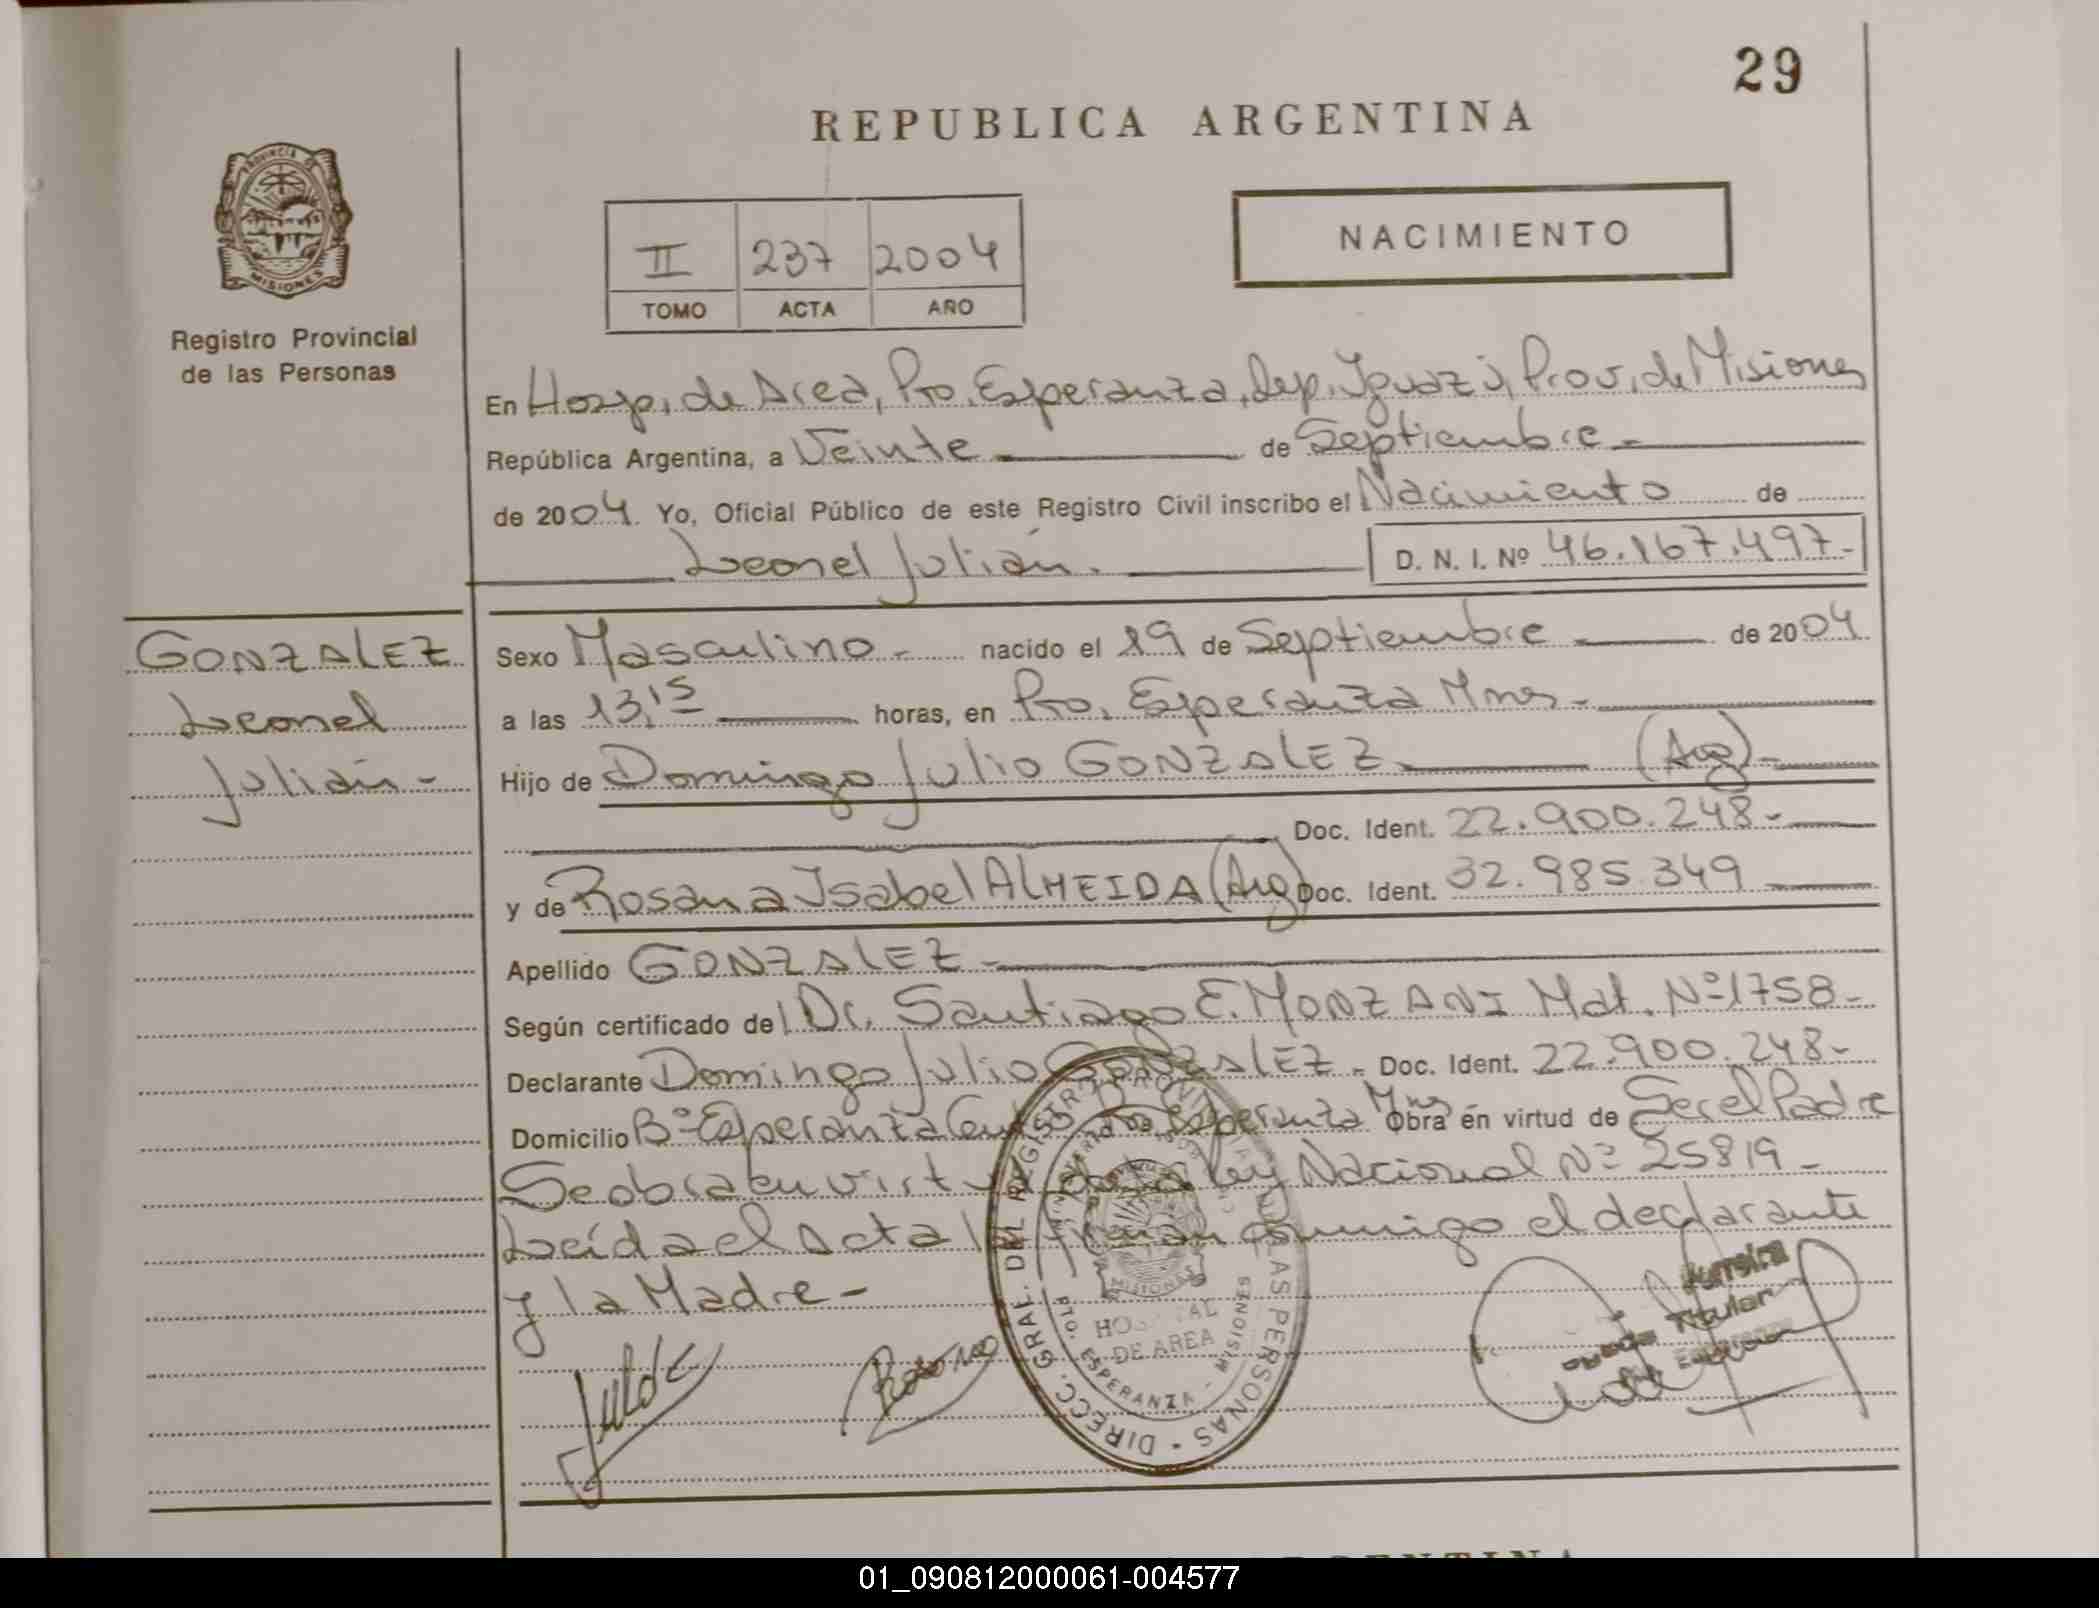 29
REPUBLICA ARGENTINA
PROVINCIA DE
MISIONES
Registro Provincial
de las Personas
II 237 2004
TOMO ACTA AÑO
NACIMIENTO
En Hosp. de Area, Pto. Esperanza, Dep. Iguazú, Prov. de Misiones
República Argentina, a Veinte de Septiembre
de 2004. Yo, Oficial Público de este Registro Civil inscribo el Nacimiento de
Leonel Julián.
D. N. I. Nº 46.167.497-
GONZALEZ
Leonel
Julián-
Sexo Masculino- nacido el 19 de Septiembre de 2004
a las 13,15 horas, en Pto. Esperanza Mnes-
Hijo de Domingo Julio GONZALEZ (Arg)-
Doc. Ident. 22.900.248-
y de Rosana Isabel ALMEIDA (Arg) Doc. Ident. 32.985.349
Apellido GONZALEZ-
Según certificado del Dr. Santiago E. MONZANI Mat. Nº 1758-
Declarante Domingo Julio GONZALEZ- Doc. Ident. 22.900.248-
Domicilio Bº Esperanza Esperanza Mnes Obra en virtud de Ser el Padre
Se obra en virtud de la ley Nacional Nº 25819-
Leída el Acta firman conmigo el declarante
y la Madre-
DIRECC. GRAL. DEL REGISTRO PROVINCIAL DE LAS PERSONAS
MISIONES
HOSPITAL
DE AREA
PTO. ESPERANZA - MISIONES
Rosana
Titular
01_090812000061-004577